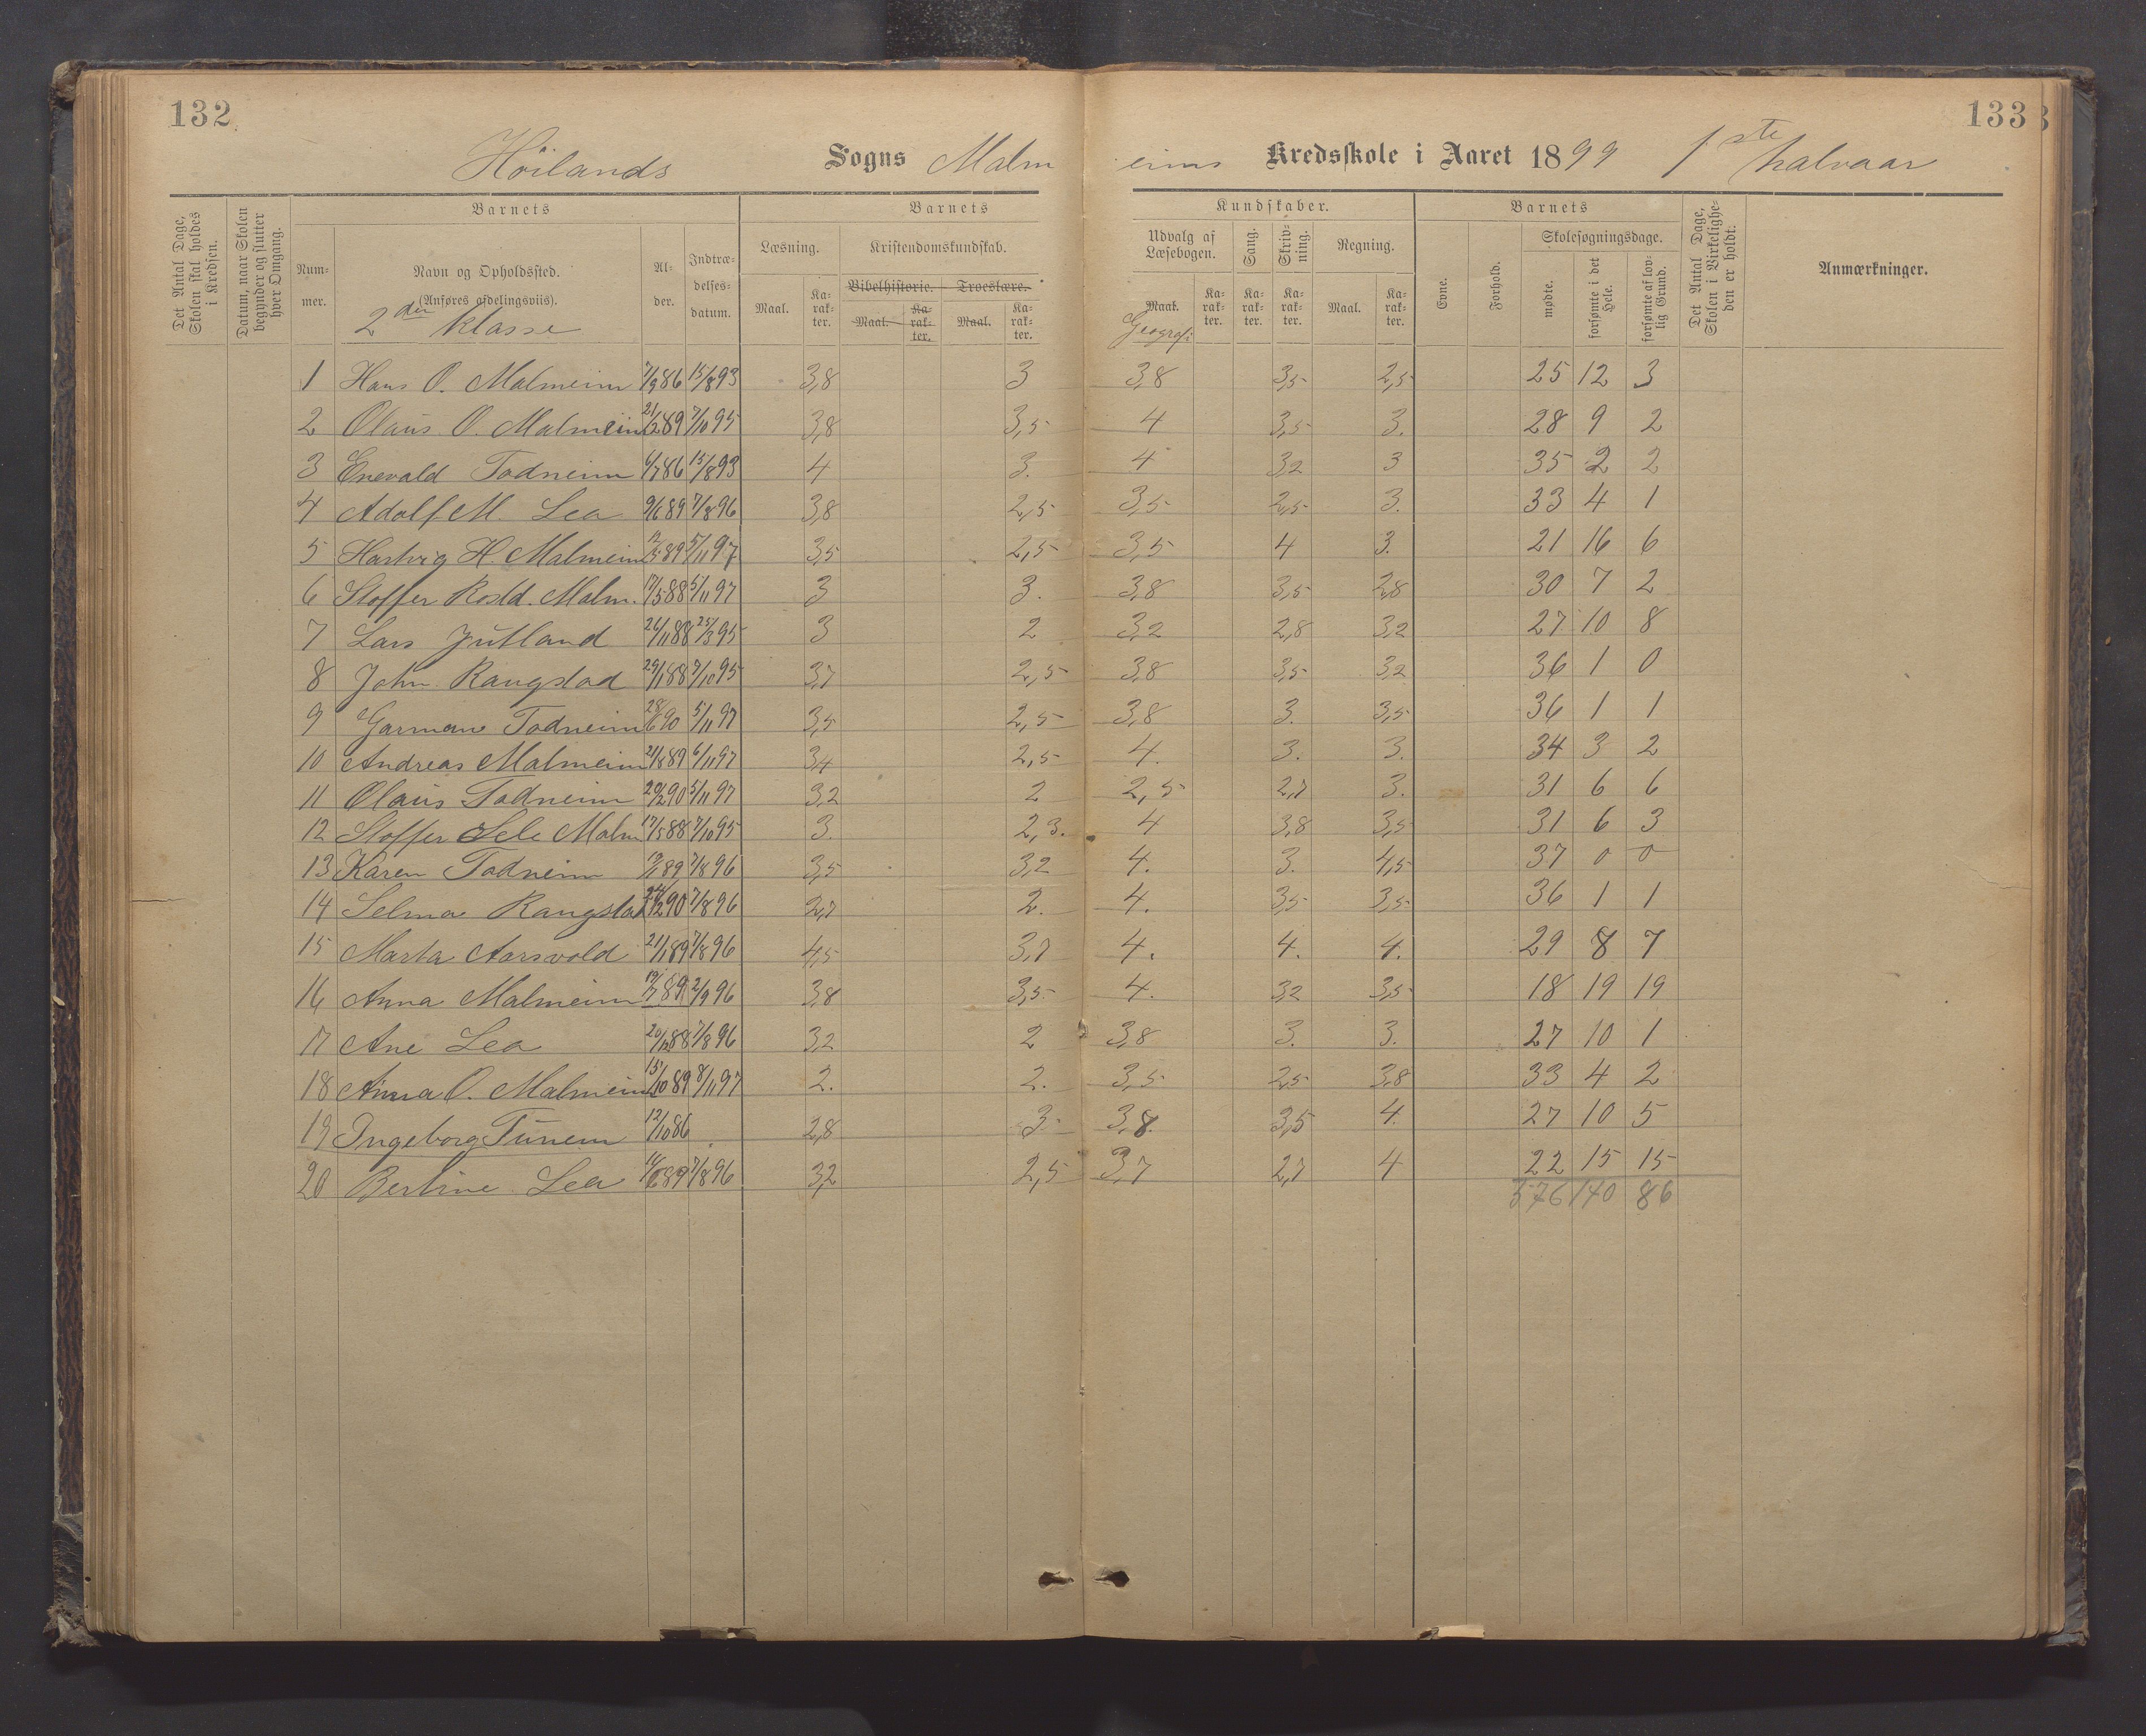 132
133
Höilands Sogns Malmeims Kredsskole i Aaret 1899 1ste halvaar
Det Antal Dage, Skolen skal holdes i Kredsen.
Datum, naar Skolen begynder og slutter hver Omgang.
Barnets
Nummer.
Navn og Opholdssted.
(Anføres afdelingsviis).
2den klasse
Alder.
Indtrædelsesdatum.
Barnets Kundskaber.
Læsning.
Maal. Karakter.
Kristendomskundskab.
Bibelhistorie. Troeslære.
Maal. Karakter. Maal. Karakter.
Udvalg af Læsebogen.
Maal. Karakter.
Geografi
Sang. Karakter.
Skrivning. Karakter.
Regning.
Maal. Karakter.
Barnets
Evne.
Forhold.
Skolesøgningsdage.
mødte.
forsømte i det Hele.
forsømte af lovlig Grund.
Det Antal Dage, Skolen i Virkeligheden er holdt.
Anmærkninger.
1 Hans O. Malmeim 7/9 86 15/8 93 3,8 3 3,8 3,5 2,5 25 12 3
2 Olaus O. Malmeim 21/2 89 7/10 95 3,8 3,5 4 3,5 3. 28 9 2
3 Enevald Todneim 6/7 86 15/8 93 4 3. 4 3,2 3 35 2 2
4 Adolf M. Lea 9/6 89 7/8 96 3,8 2,5 3,5 2,5 3. 33 4 1
5 Hartvig H. Malmeim 89 5/11 97 3,5 2,5 3,5 4 3. 21 16 6
6 Stoffer Rosld. Malm. 17/5 88 5/11 97 3 3. 3,8 3,5 2,8 30 7 2
7 Lars Jutland 26/11 88 25/3 95 3 2 3,2 2,8 3,2 27 10 8
8 John Rangstad 29/1 88 7/10 95 3,7 2,5 3,8 3,5 3,2 36 1 0
9 Garman Todneim 28/6 90 5/11 97 3,5 2,5 3,8 3. 3,5 36 1 1
10 Andreas Malmeim 21/8 89 6/11 97 3,4 2,5 4. 3. 3. 34 3 2
11 Olaus Todneim 20/2 90 5/11 97 3,2 2 2,5 2,7 3. 31 6 6
12 Stoffer Sele Malm 17/5 88 7/10 95 3. 2,3. 4 3,8 3,5 31 6 3
13 Karen Todneim 89 7/8 96 3,5 3,2 4. 3. 4,5 37 0 0
14 Selma Rangstad 90 7/8 96 2,7 2. 4. 3,5 3,5 36 1 1
15 Marta Aarsvold 21/1 89 7/8 96 4,5 3,7 4. 4. 4. 29 8 7
16 Anna Malmeim 19/7 89 2/9 96 3,8 3,5 4. 3,2 3,5 18 19 19
17 Ane Lea 88 7/8 96 3,2 2 3,8 3. 3. 27 10 1
18 Anna O. Malmeim 15/10 89 8/11 97 2. 2. 3,5 2,5 3,8 33 4 2
19 Ingeborg Tunem 12/10 86 2,8 3 3,8. 3,5 4. 27 10 5
20 Bertine Lea 89 7/8 96 3,2 2,5 3,7 2,7 4 22 15 15
576 140 86